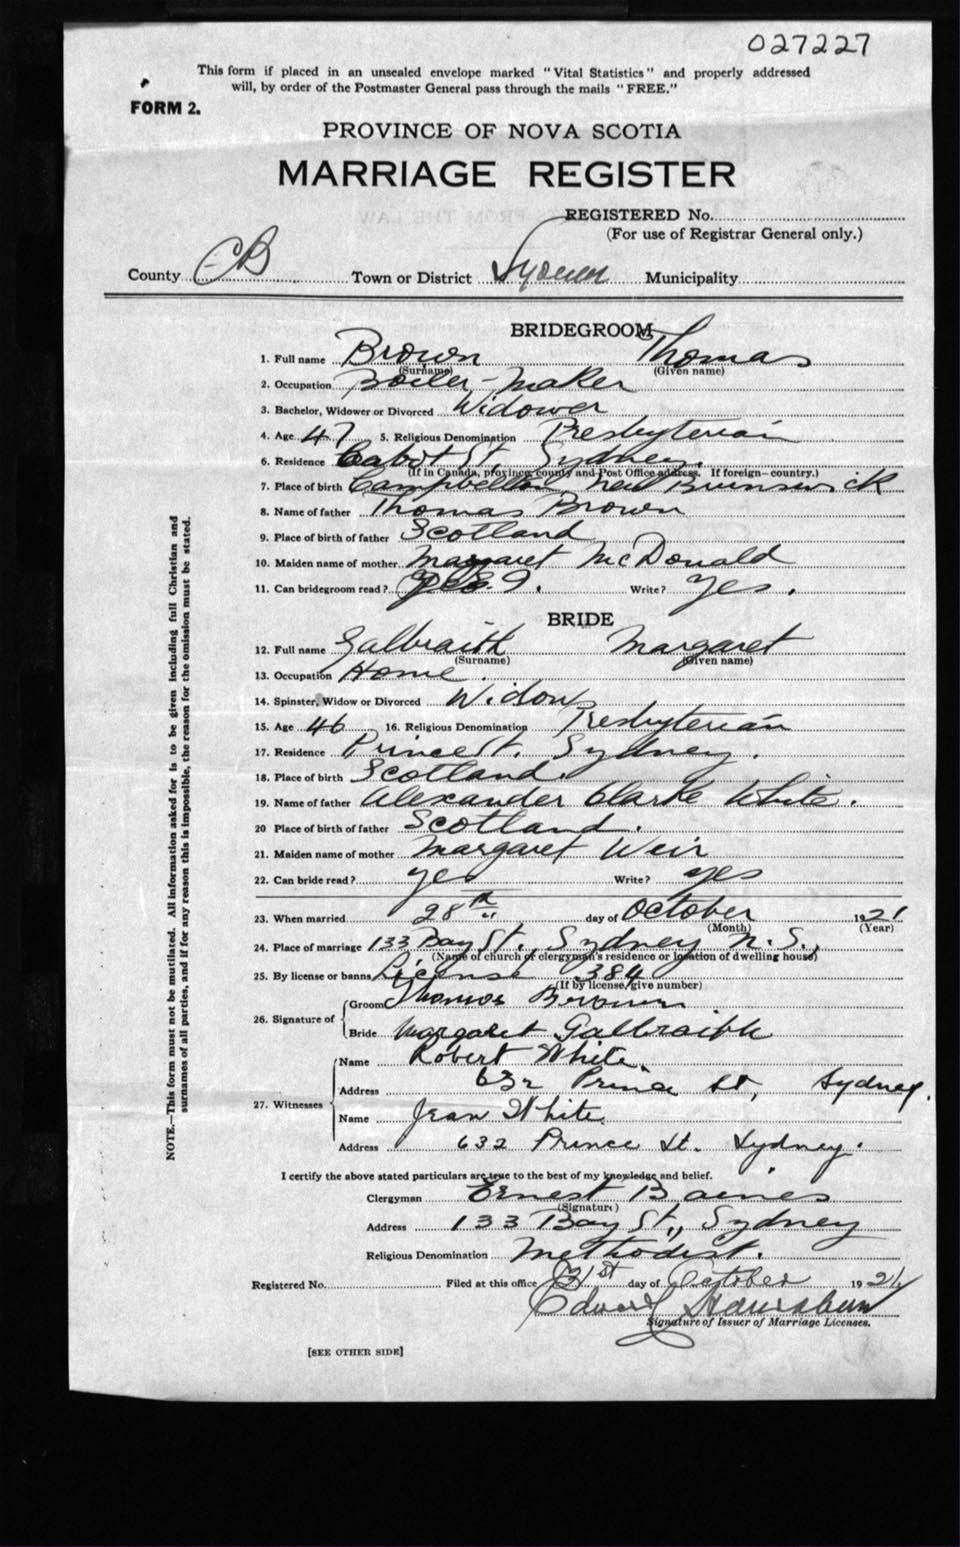 027227
This form if placed in an unsealed envelope marked "Vital Statistics" and properly addressed
will, by order of the Postmaster General pass through the mails "FREE."
FORM 2.
PROVINCE OF NOVA SCOTIA
MARRIAGE REGISTER
REGISTERED No.
(For use of Registrar General only.)
County CB Town or District Sydney Municipality
BRIDEGROOM
1. Full name Brown Thomas
(Surname) (Given name)
2. Occupation Boiler-Maker
3. Bachelor, Widower or Divorced Widower
4. Age 47 5. Religious Denomination Presbyterian
6. Residence Cabot St, Sydney.
(If in Canada, province, county and Post Office address. If foreign—country.)
7. Place of birth Campbellton New Brunswick
8. Name of father Thomas Brown
9. Place of birth of father Scotland
10. Maiden name of mother Margaret McDonald
11. Can bridegroom read? Write? Yes.
BRIDE
12. Full name Galbraith Margaret
(Surname) (Given name)
13. Occupation Home.
14. Spinster, Widow or Divorced Widow
15. Age 46 16. Religious Denomination Presbyterian
17. Residence Prince St. Sydney.
18. Place of birth Scotland.
19. Name of father Alexander Clarke White.
20 Place of birth of father Scotland.
21. Maiden name of mother Margaret Weir
22. Can bride read? yes Write? yes
23. When married 28th day of October 1921
(Month) (Year)
24. Place of marriage 133 Bay St., Sydney N.S.,
(Name of church or clergyman's residence or location of dwelling house)
25. By license or banns License 384
(If by license, give number)
26. Signature of Groom Thomas Brown
Bride Margaret Galbraith
27. Witnesses Name Robert White.
Address 632 Prince St, Sydney.
Name Jean White.
Address 632 Prince St. Sydney.
I certify the above stated particulars are true to the best of my knowledge and belief.
Clergyman Ernest Baines
(Signature)
Address 133 Bay St., Sydney
Religious Denomination Methodist.
Registered No. Filed at this office 31st day of October 1921
Edward
Signature of Issuer of Marriage Licenses.
[SEE OTHER SIDE]
NOTE.—This form must not be mutilated. All information asked for is to be given including full Christian and
surnames of all parties, and if for any reason this is impossible, the reason for the omission must be stated.